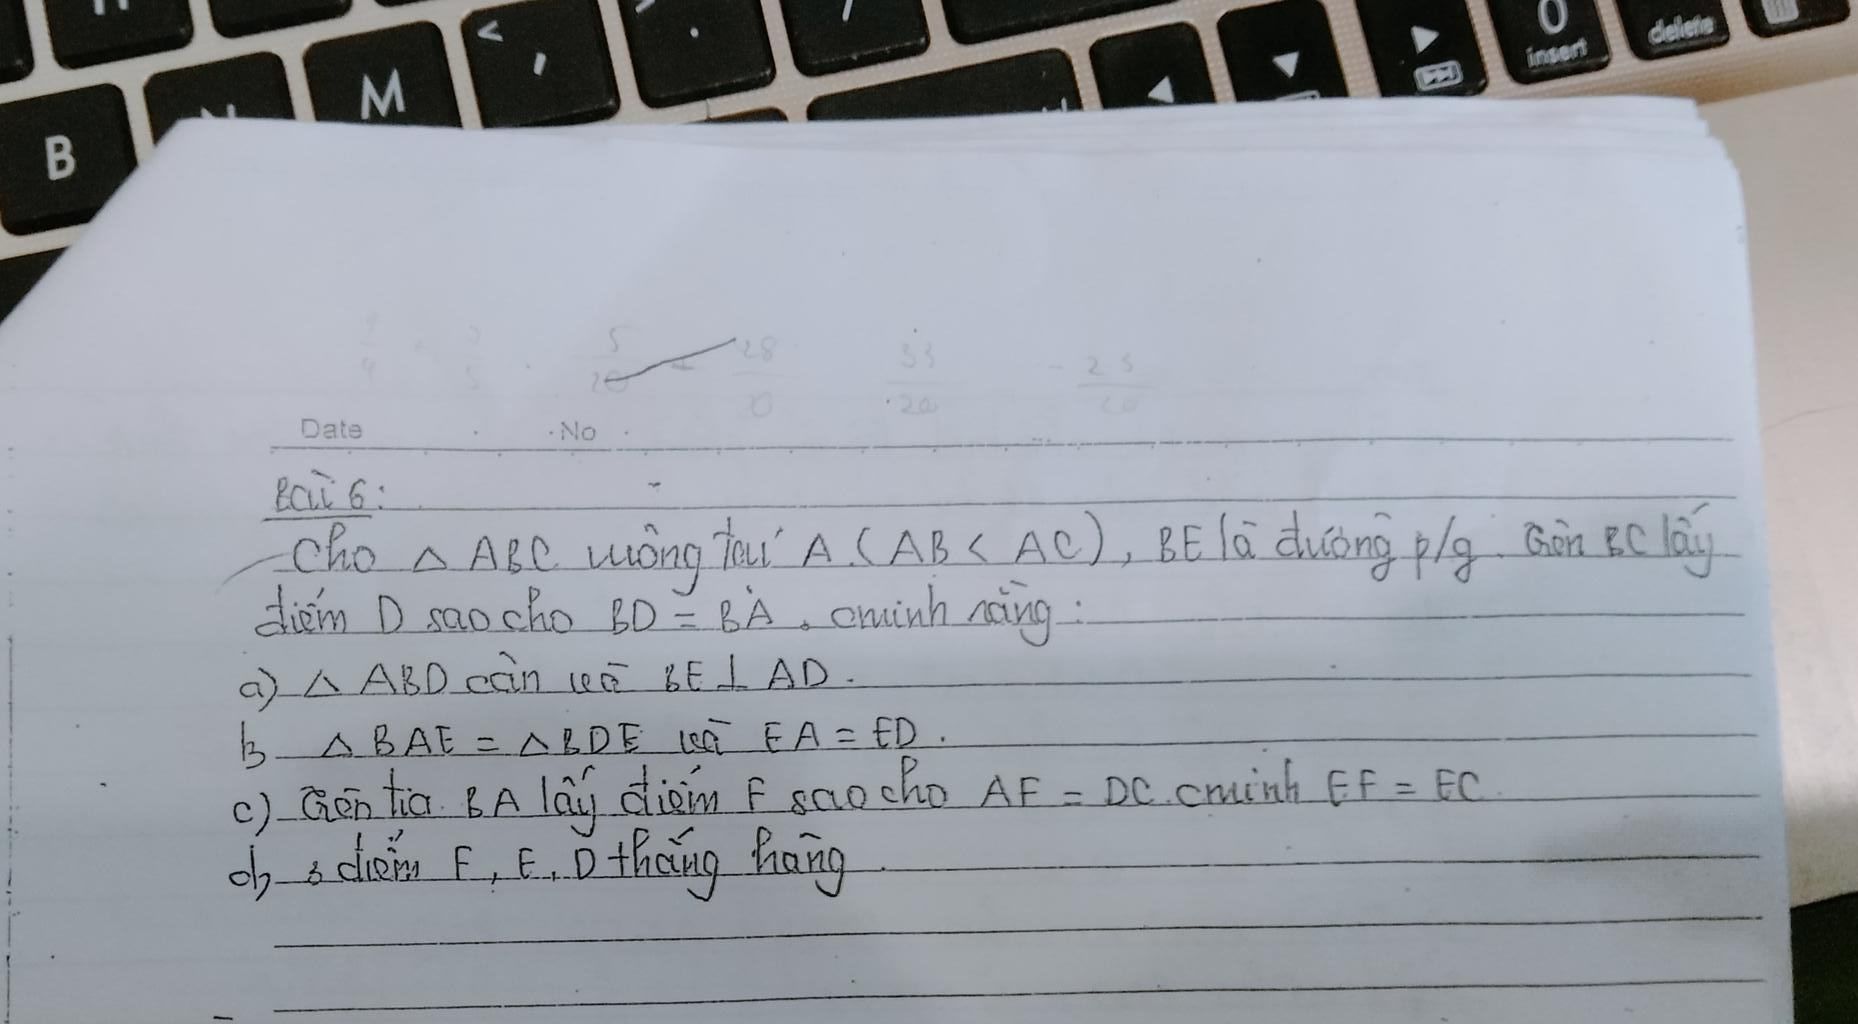 B
M
<
,
>
.
/
0
insert
delete
5 28 33 - 25
20 20 20
Date No
Bài 6:
Cho △ ABC vuông tại A (AB < AC), BE là đường p/g. Trên BC lấy
điểm D sao cho BD = BA. cminh rằng:
a) △ ABD cân và BE ⊥ AD.
b △ BAE = △ BDE và EA = ED.
c) Trên tia BA lấy điểm F sao cho AF = DC. cminh EF = EC.
d) 3 điểm F, E, D thẳng hàng